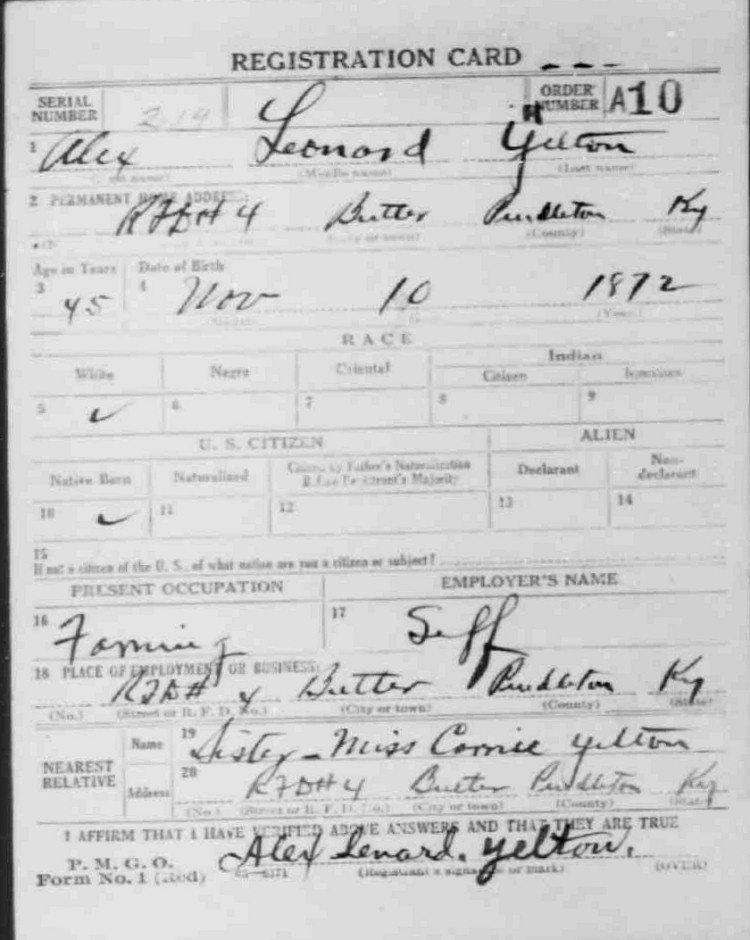 REGISTRATION CARD
SERIAL NUMBER 219 ORDER NUMBER A10
1 Alex Leonard Yelton
(Middle name) (Last name)
2 PERMANENT HOME ADDRESS:
RFD# 4 Butler Pendleton Ky
(City or town) (County) (State)
Age in Years Date of Birth
3 45 4 Nov 10 1872
(Year)
RACE
White Negro Oriental Indian
Citizen Noncitizen
5 ✓ 6 7 8 9
U. S. CITIZEN ALIEN
Native Born Naturalized Citizen by Father's Naturalization Before Registrant's Majority Declarant Non-declarant
10 ✓ 11 12 13 14
15
If not a citizen of the U. S., of what nation are you a citizen or subject?
PRESENT OCCUPATION EMPLOYER'S NAME
16 Farming 17 Self
18 PLACE OF EMPLOYMENT OR BUSINESS:
RFD# 4 Butler Pendleton Ky
(No.) (Street or R. F. D. No.) (City or town) (County) (State)
NEAREST RELATIVE
Name 19 Sister - Miss Yelton
Address 20 RFD# 4 Butler Pendleton Ky
(No.) (Street or R. F. D. No.) (City or town) (County) (State)
I AFFIRM THAT I HAVE VERIFIED ABOVE ANSWERS AND THAT THEY ARE TRUE
P. M. G. O.
Form No. 1 (Red) Alex Lenard. Yelton.
(Registrant's signature or mark) (OVER)